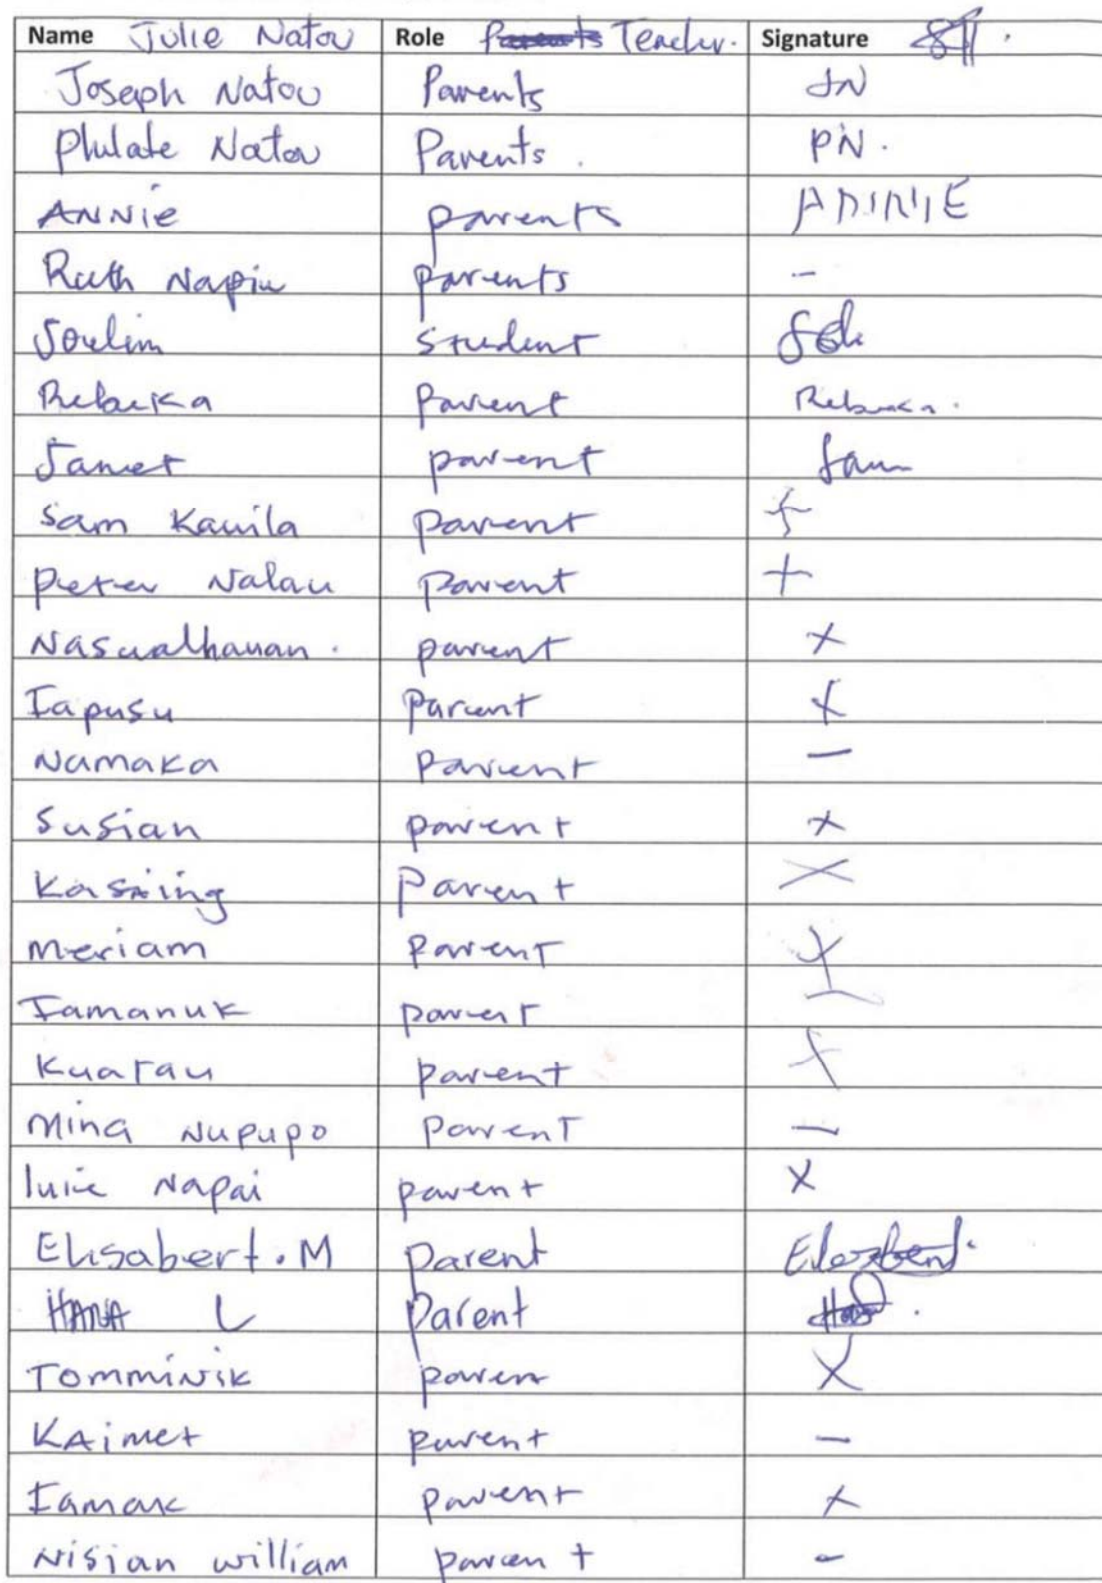 Name Julie Natou Role Parents Teacher. Signature
Joseph Natou Parents JN
Phulate Natou Parents. PN.
ANNiE parents ANNIE
Ruth Napiu parents -
Joulim Student
Rebecka Parent Rebecka.
Janet parent Jan
Sam Kauila parent +
Peter Nalau parent +
Nasualhauan. parent x
Iapusu Parent x
Namaka Parent —
Susian parent x
Kasaing Parent x
Meriam Parent x
Iamanuk parent —
Kuatau parent x
Mina Nupupo Parent —
luie Napai parent x
Elisabert. M parent
HANA L parent
Tomminik paren x
KAimet parent —
Iamak parent x
Nisian william parent -